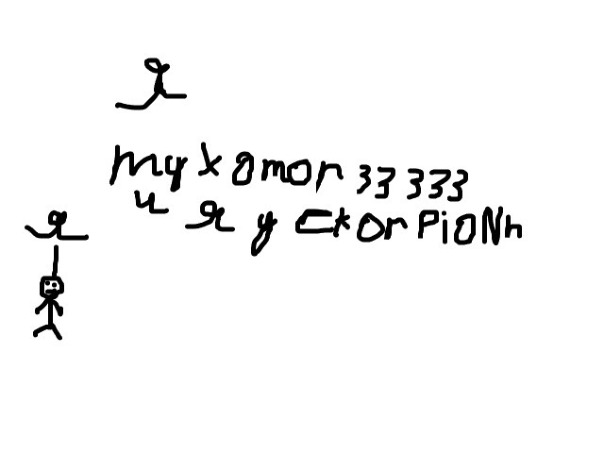 я
myxomor 33 333
и я у скоrpioNh
я